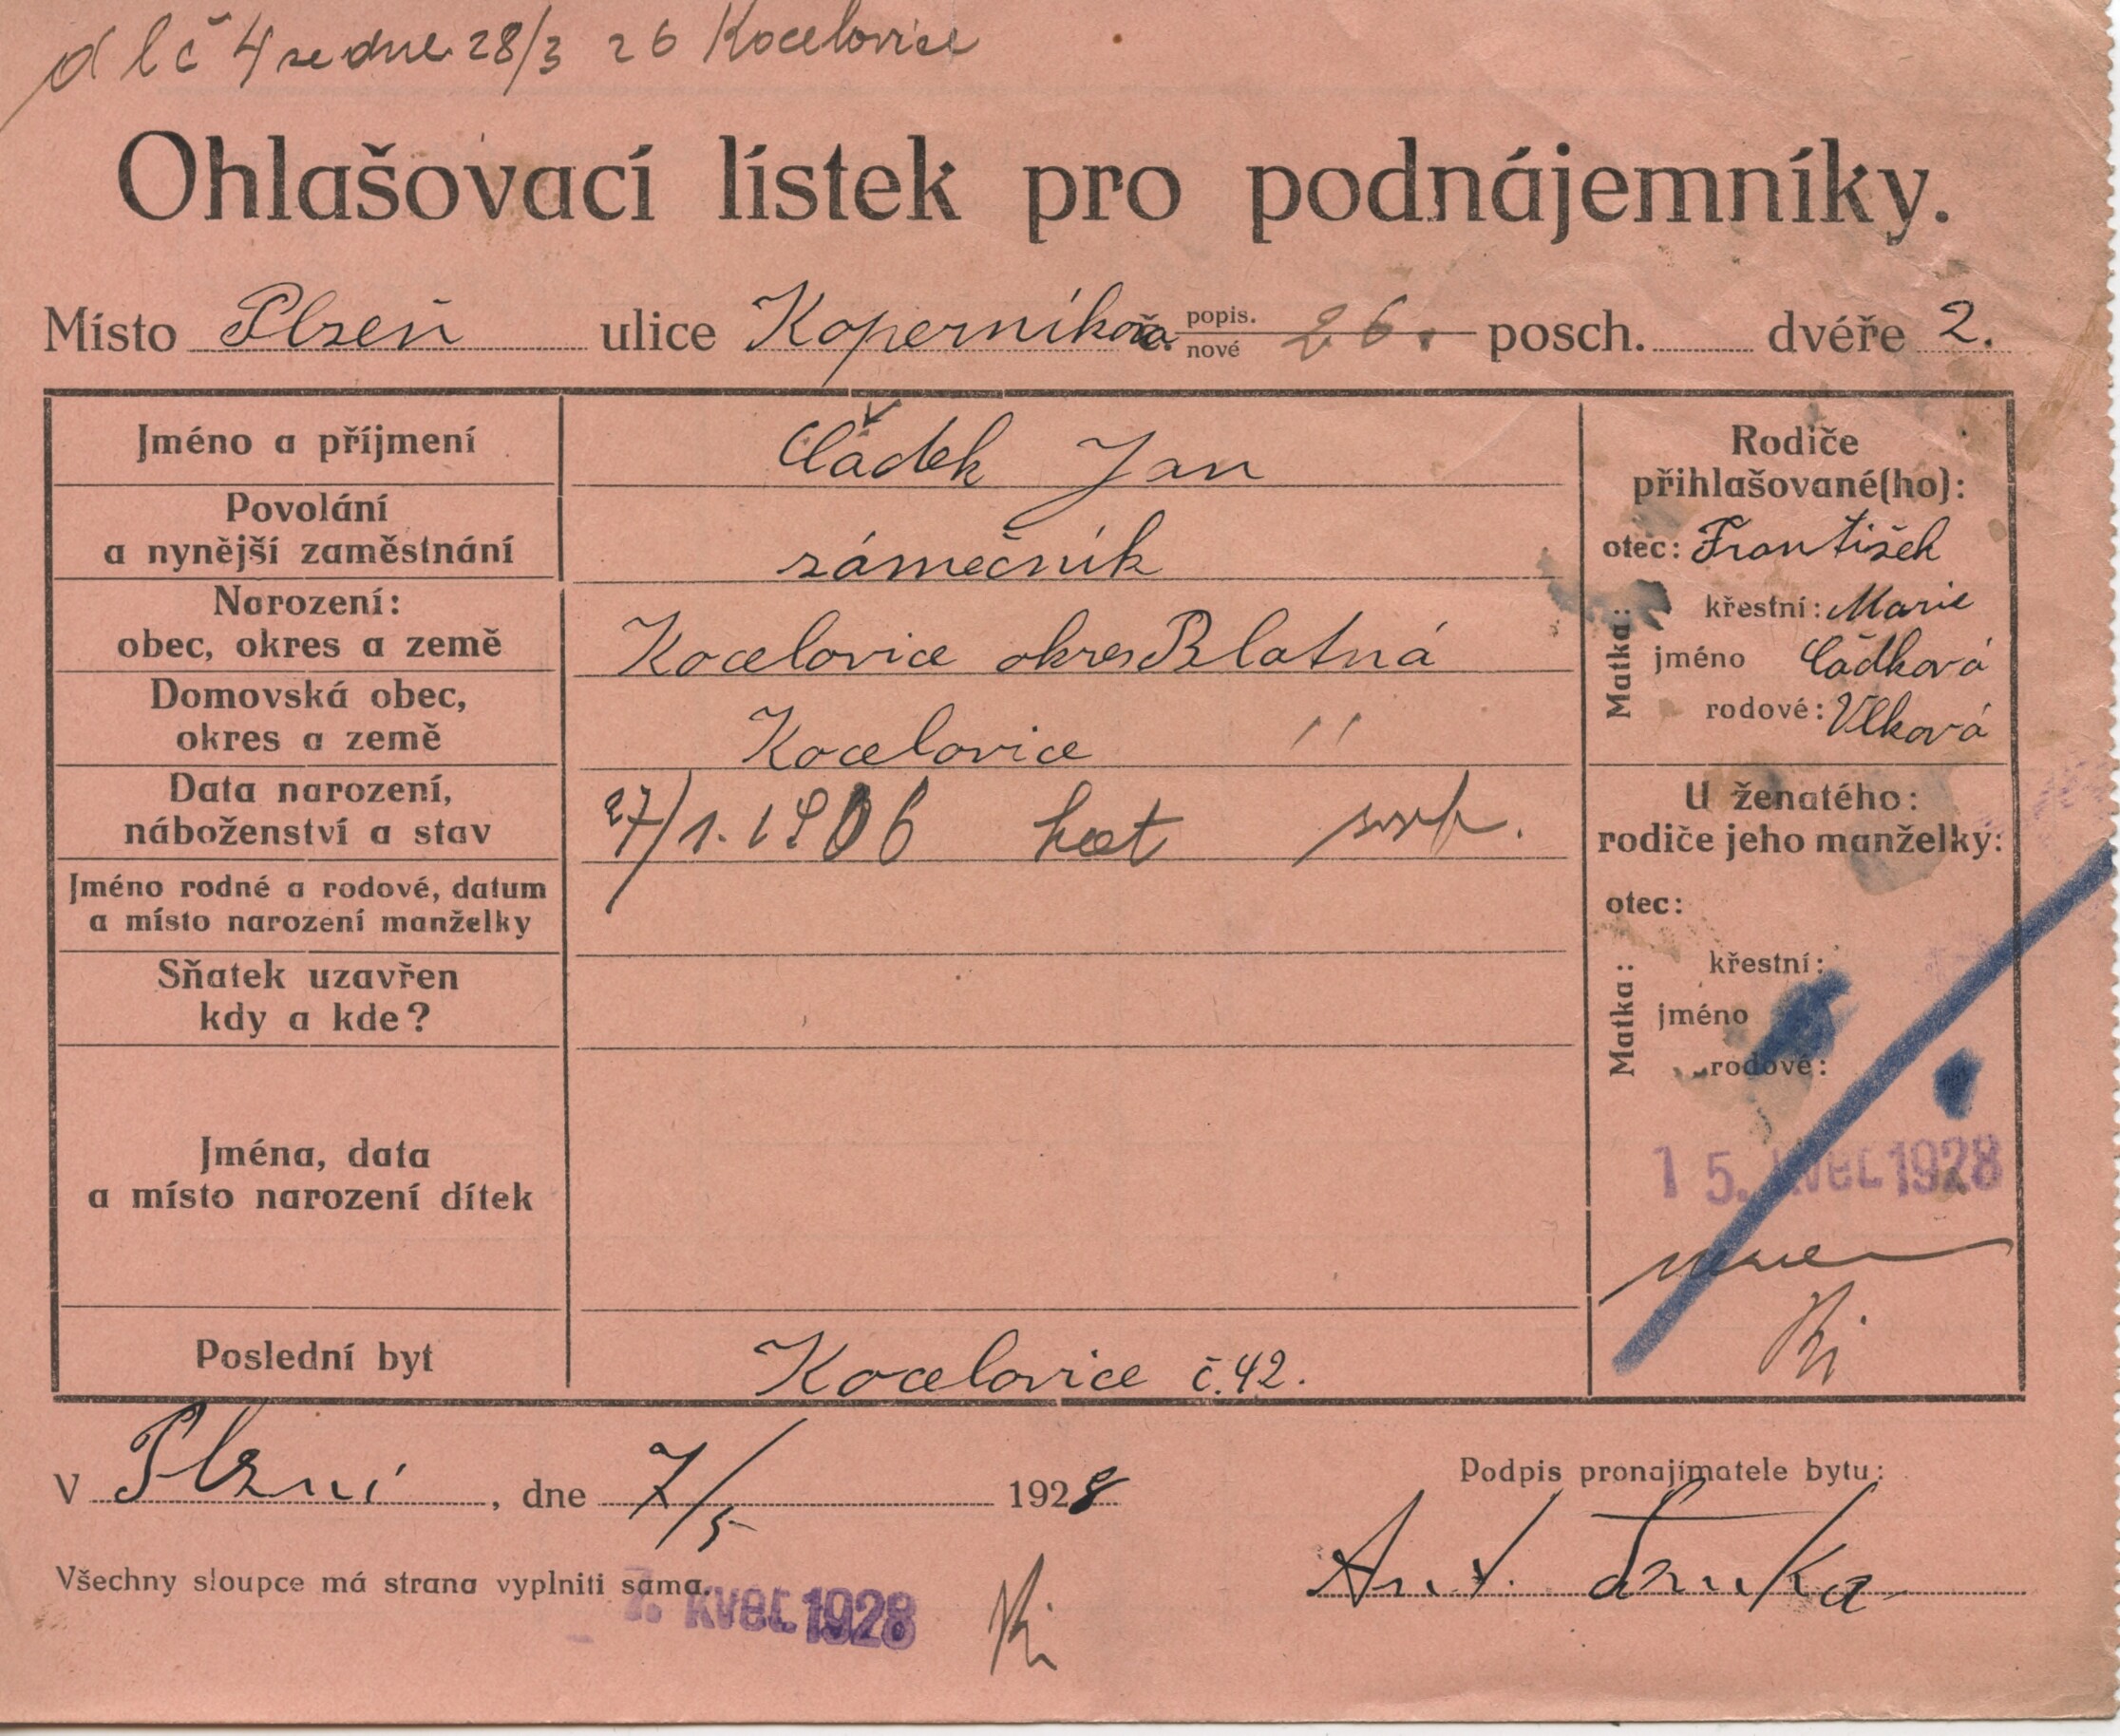 d l č 4 ze dne 28/3 26 Kocelovice
Ohlašovací lístek pro podnájemníky.
Místo Plzeň ulice Koperníkova popis. nové 26. posch. dvéře 2.
Jméno a příjmení Čádek Jan
Povolání
a nynější zaměstnání zámečník
Narození:
obec, okres a země Kocelovice okres Blatná
Domovská obec,
okres a země Kocelovice ''
Data narození,
náboženství a stav 27/1. 1906 kat svob.
Jméno rodné a rodové, datum
a místo narození manželky
Sňatek uzavřen
kdy a kde?
Jména, data
a místo narození dítek
Poslední byt Kocelovice č. 42.
Rodiče
přihlašované(ho):
otec: František
Matka:
křestní: Marie
jméno Čádková
rodové: Vlková
U ženatého:
rodiče jeho manželky:
otec:
Matka:
křestní:
jméno
rodové:
15. kvĕt. 1928
V Plzni, dne 7/5 1928
Podpis pronajímatele bytu:
Ant.
Všechny sloupce má strana vyplniti sama.
7. kvĕt. 1928